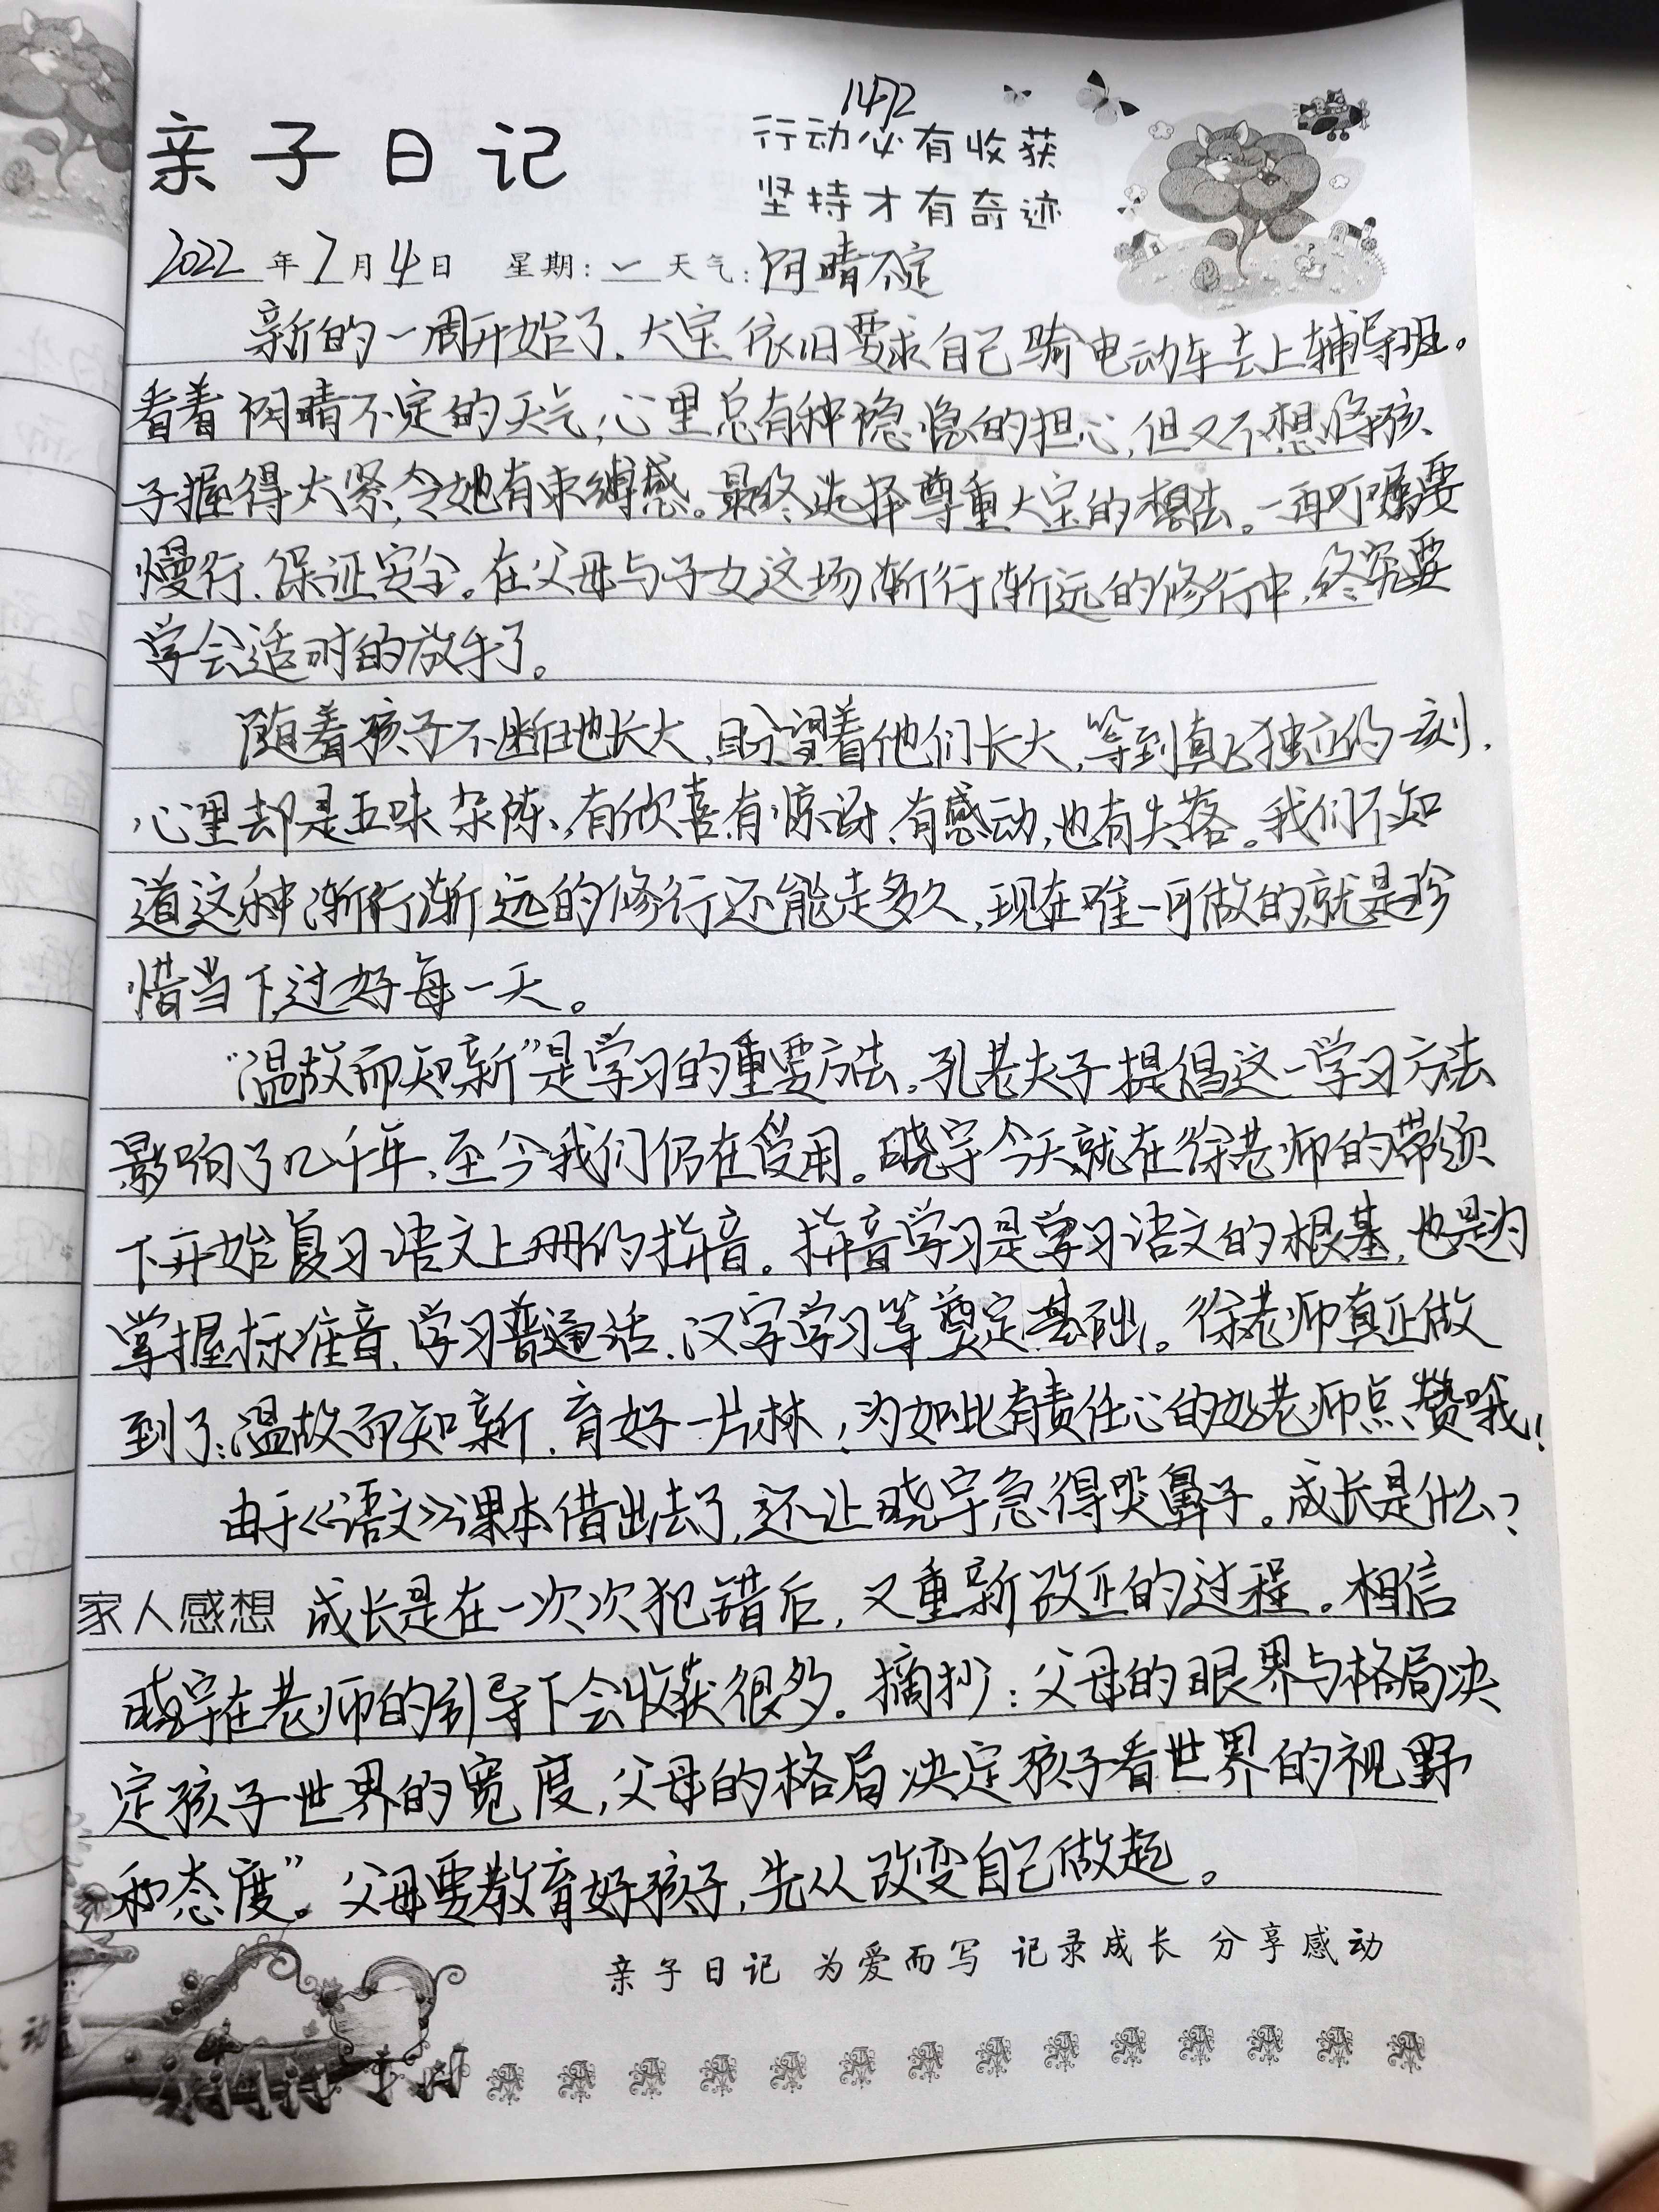 1472
亲子日记
行动必有收获
坚持才有奇迹
2022年7月4日 星期:一 天气:阴晴不定
新的一周开始了,大宝依旧要求自己骑电动车去上辅导班。
看着阴晴不定的天气,心里总有种隐隐的担心,但又不想将孩
子握得太紧,令她有束缚感。最终选择尊重大宝的想法。一再叮嘱要
慢行,保证安全。在父母与子女这场渐行渐远的修行中,终究要
学会适时的放手了。
随着孩子不断地长大,盼望着他们长大,等到真正独立的一刻,
心里却是五味杂陈,有欣喜,有惊讶,有感动,也有失落。我们不知
道这种渐行渐远的修行还能走多久,现在唯一可做的就是珍
惜当下,过好每一天。
“温故而知新”是学习的重要方法,孔老夫子提倡这一学习方法
影响了几千年,至今我们仍在受用。晓宇今天就在徐老师的带领
下开始复习语文上册的拼音。拼音学习是学习语文的根基,也是为
掌握标准音,学习普通话,汉字学习等奠定基础。徐老师真正做
到了:温故而知新,育好一片林,为如此有责任心的好老师点赞哦!
由于《语文》课本借出去了,还让晓宇急得哭鼻子。成长是什么?
家人感想 成长是在一次次犯错后,又重新改正的过程。相信
晓宇在老师的引导下会收获很多。摘抄:父母的眼界与格局决
定孩子世界的宽度,父母的格局决定孩子看世界的视野
和态度”。父母要教育好孩子,先从改变自己做起。
亲子日记 为爱而写 记录成长 分享感动